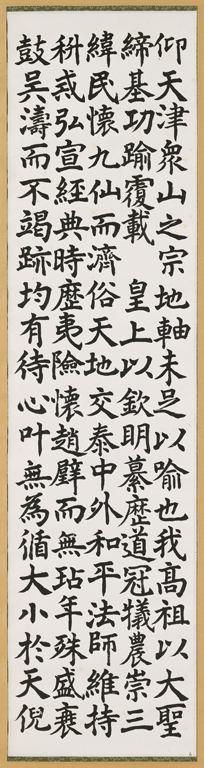 仰天津衆山之宗地軸未足以喻也我髙祖以大聖
締基功踰覆載 皇上以欽明纂歷道冠犧農崇三
緯民懷九仙而濟俗天地交泰中外和平法師維持
科戒弘宣經典時歷夷險懷趙璧而無玷年殊盛衰
鼓吳濤而不竭跡均有待心叶無為循大小於天倪